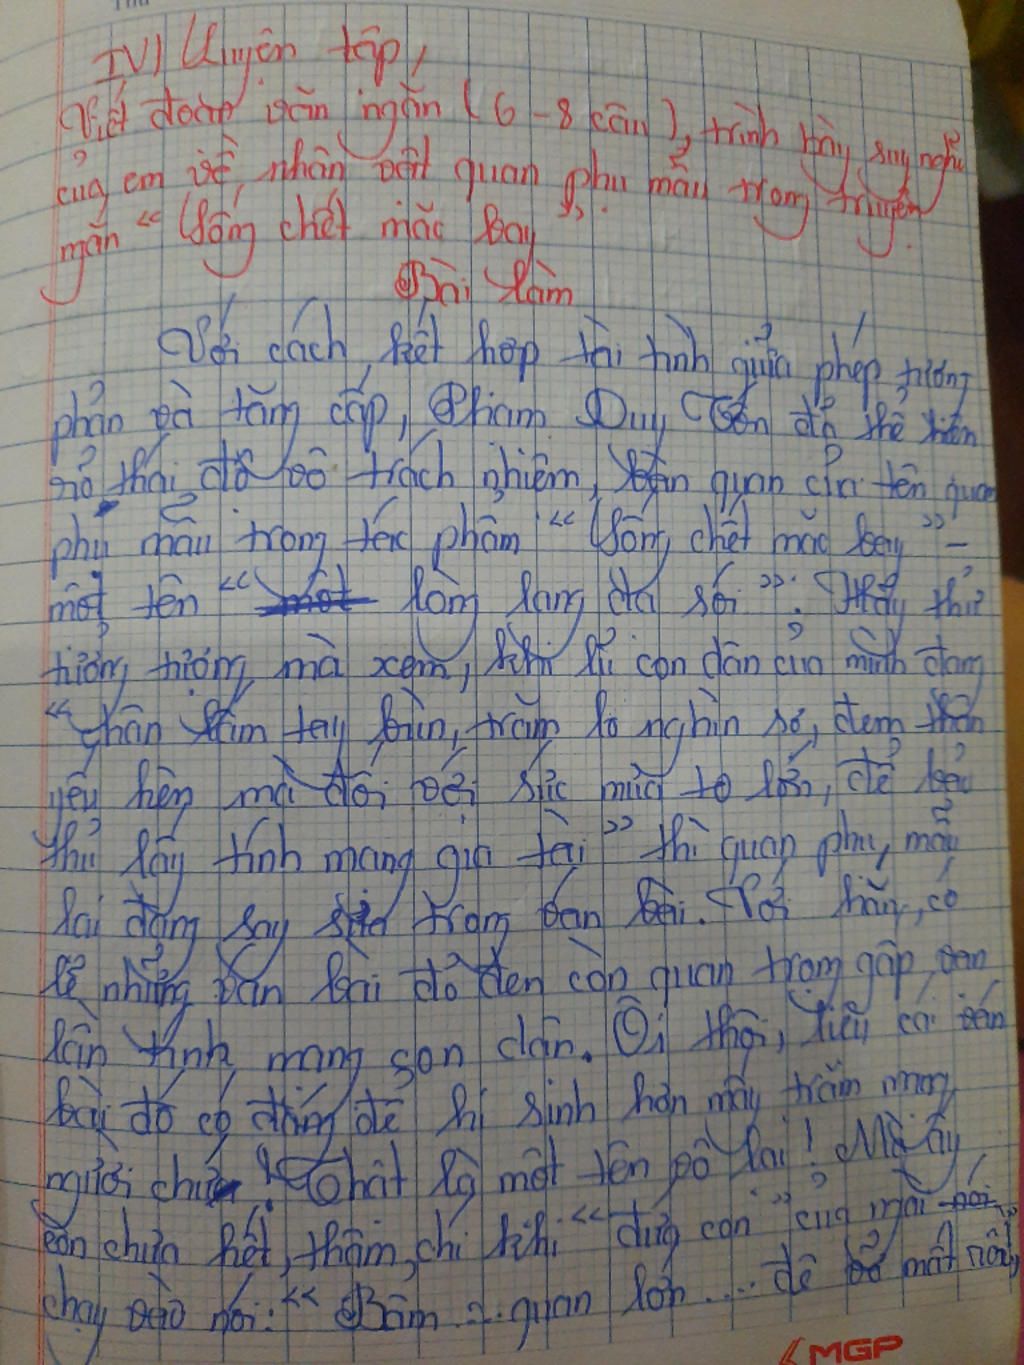 IV) Luyện tập,
Viết đoạn văn ngắn (6 - 8 câu), trình bày suy nghĩ
của em về nhân vật quan phụ mẫu trong truyện
ngắn "Sống chết mặc bay".
Bài làm
Với cách kết hợp tài tình giữa phép tương
phản và tăng cấp, Phạm Duy Tốn đã thể hiện
rõ thái độ vô trách nhiệm, quan của tên quan
phụ mẫu trong tác phẩm "Sống chết mặc bay" -
một tên "lòng lang dạ sói". Hãy thử
tưởng tượng mà xem, khi lũ con dân của mình đang
"chân lấm tay bùn, trăm lo nghìn sợ, đem thân
yếu hèn mà đối với sức mưa to lớn, để bảo
thủ lấy tính mạng gia tài" thì quan phụ mẫu
lại đang say sưa trong ván bài. Với hắn, có
lẽ những ván bài đỏ đen còn quan trọng gấp vạn
lần tính mạng con dân. Ôi thôi, liệu cái ván
bài đó có đáng để hi sinh hơn mấy trăm mạng
người chứ! Thật là một tên vô lại! Mà ấy
còn chưa hết, thậm chí khi "đứa con" của mới
chạy vào nói: "Bẩm ... quan lớn .... đê vỡ mất rồi",
MGP